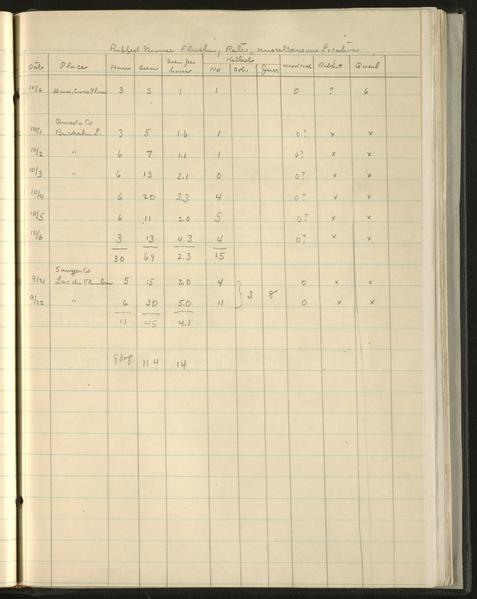 Ruffed Grouse Flushing Rates, miscellaneous Locations
Date Place Hours Seen Seen per hour Killed No Ads. Juv. Woodcock Rabbit Quail
10/6 3 3 1 1 0 ? 6
Oneida Co
10/1 L. 3 5 1.6 1 0? x x
10/2 " 6 7 1.1 1 0? x x
10/3 " 6 13 2.1 0 0? x x
10/4 " 6 20 3.3 4 0? x x
10/5 " 6 11 2.0 5 0? x x
10/6 3 13 4.3 4 0? x x
30 69 2.3 15
Sawyer Co
9/21 Lac du Flambeau 5 15 3.0 4 } 3 8 0 x x
9/22 " 6 30 5.0 11 0 x x
11 45 4.1
9 days 114 14